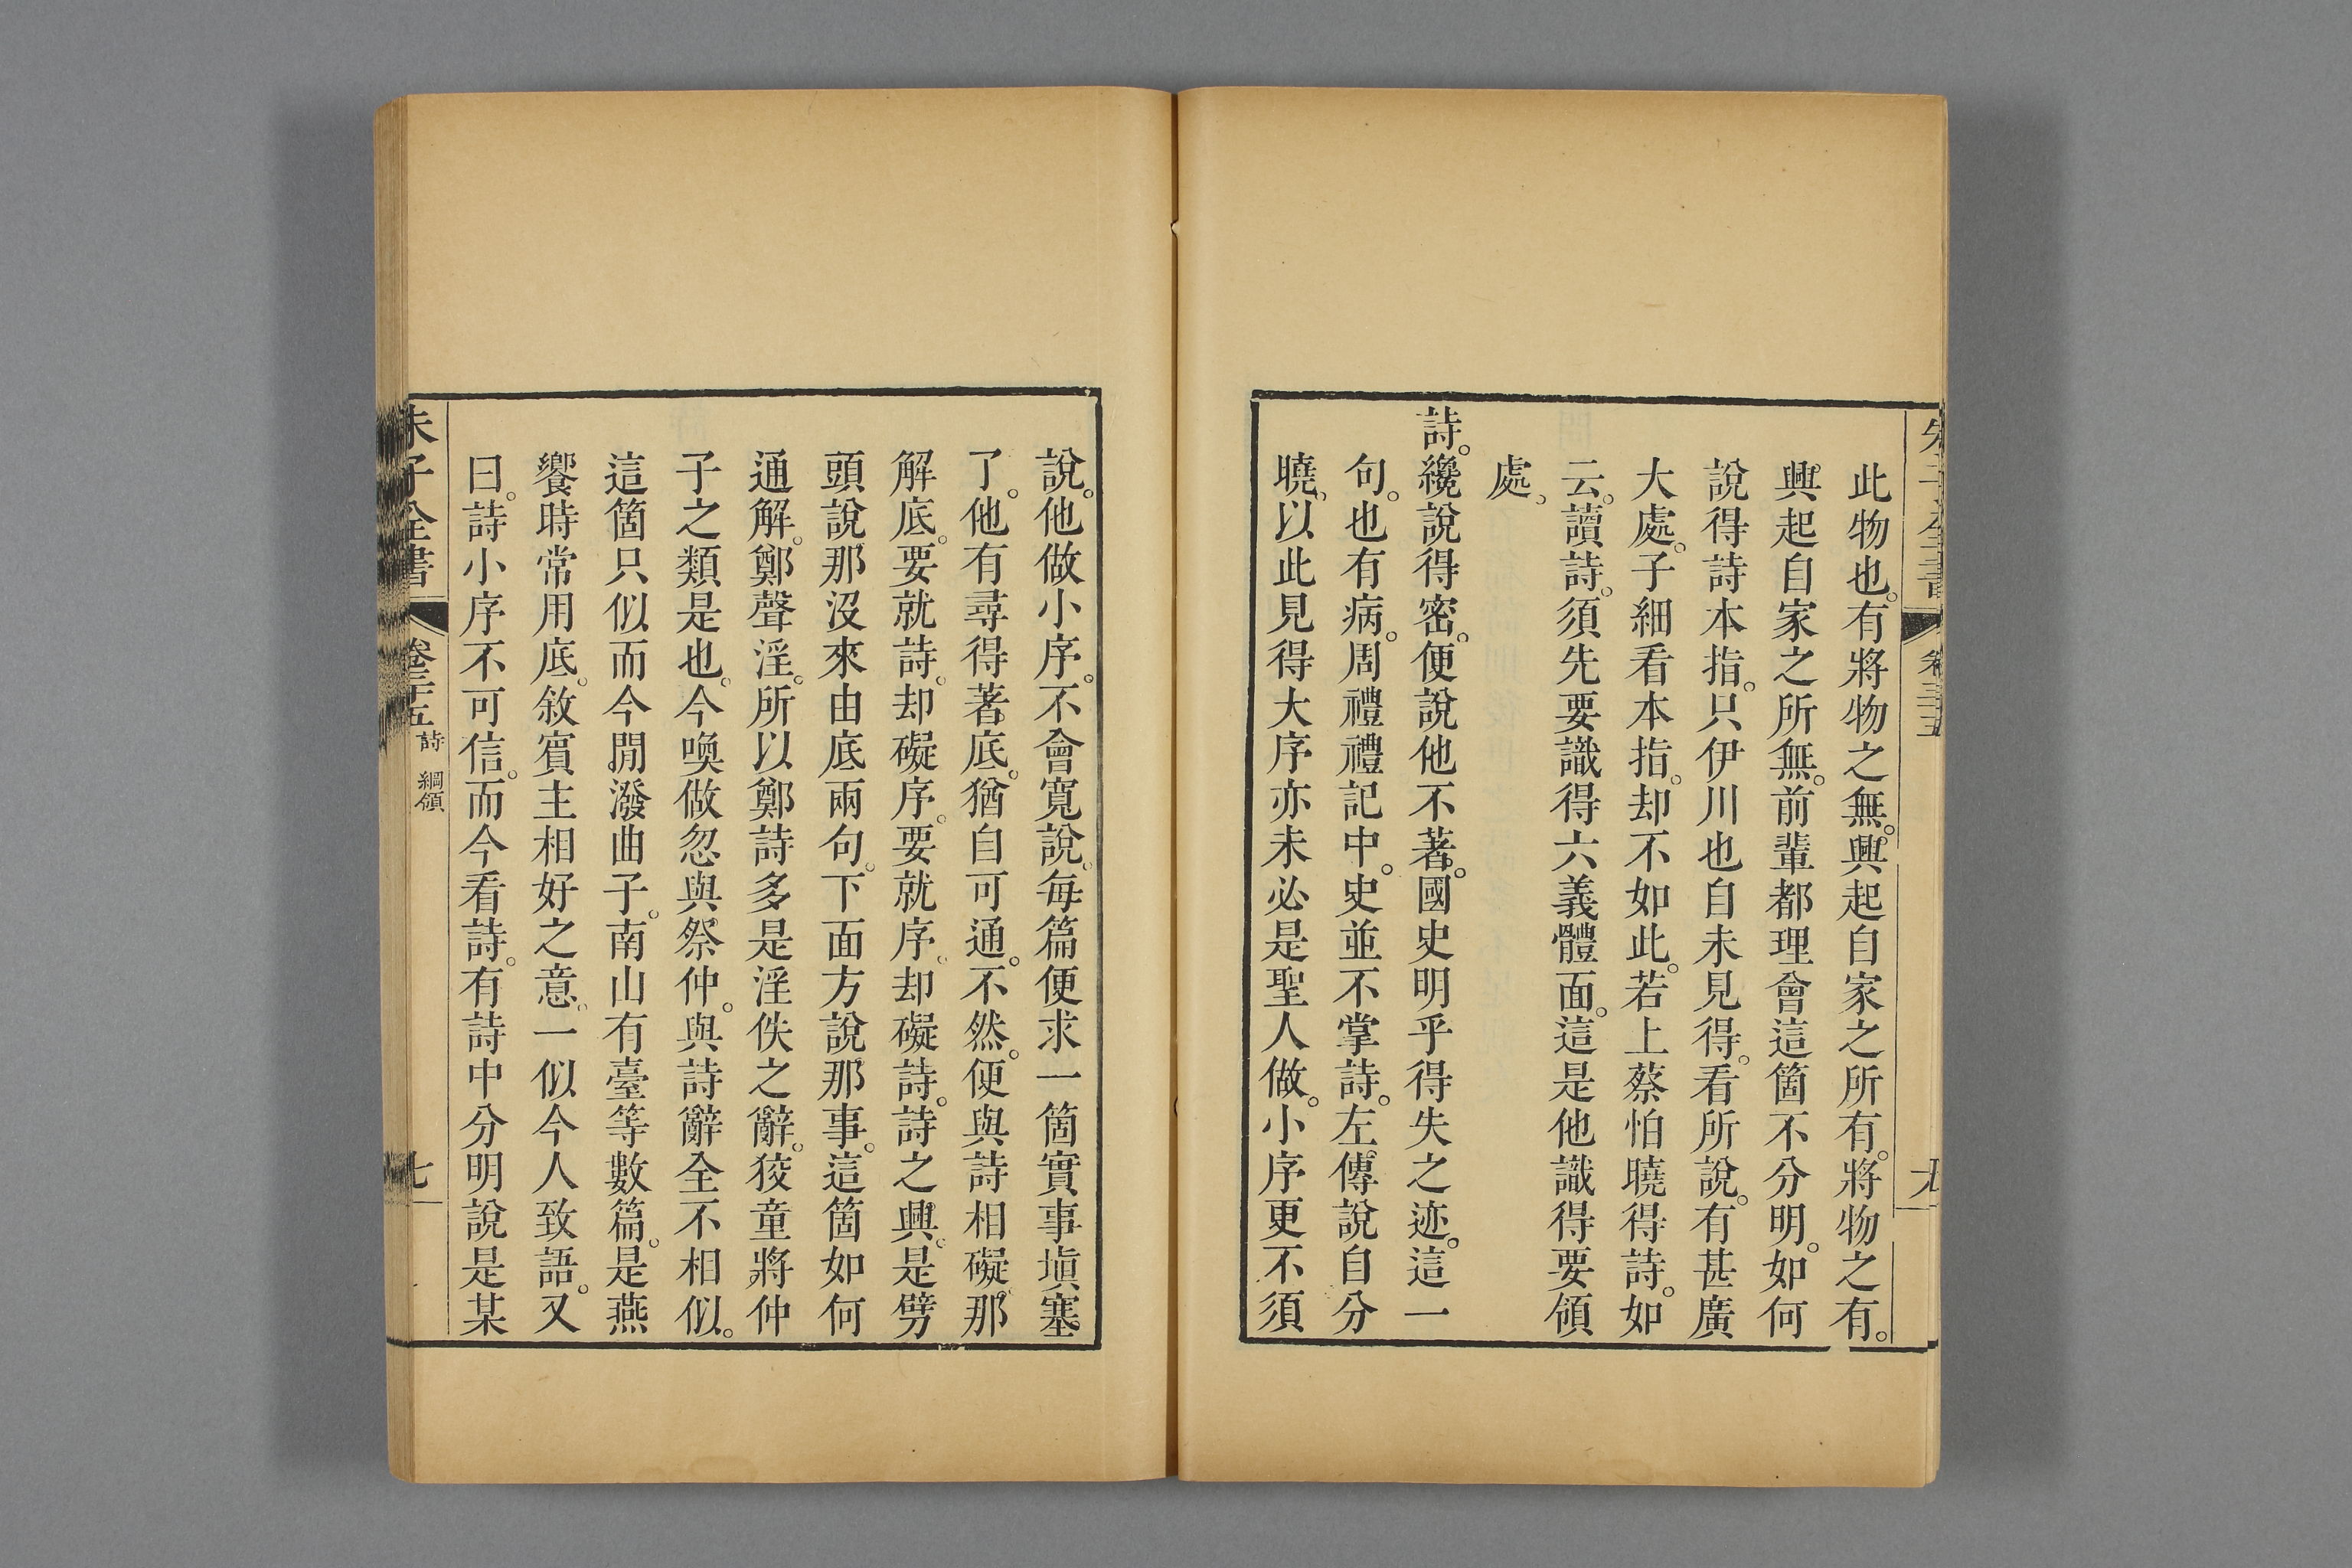 此物也。有將物之無。興起自家之所有。將物之有。
興起自家之所無。前輩都理會這箇不分明。如何
說得詩本指。只伊川也自未見得。看所說。有甚廣
大處。子細看本指。却不如此。若上蔡怕曉得詩。如
云。讀詩。須先要識得六義體面。這是他識得要領
處。
詩。纔說得密。便說他不著。國史明乎得失之迹。這一
句。也有病。周禮禮記中。史並不掌詩。左傳說自分
曉。以此見得大序亦未必是聖人做。小序更不須
說。他做小序。不會寬說。每篇便求一箇實事塡塞
了。他有尋得著底。猶自可通。不然。便與詩相礙。那
解底。要就詩。却礙序。要就序。却礙詩。詩之興。是劈
頭說那沒來由底兩句。下面方說那事。這箇如何
通解。鄭聲淫。所以鄭詩多是淫佚之辭。狡童將仲
子之類是也。今喚做忽與祭仲。與詩辭全不相似。
這箇只似而今閒潑曲子。南山有臺等數篇。是燕
饗時常用底。敘賓主相好之意。一似今人致語。又
曰。詩小序不可信。而今看詩。有詩中分明說是某
朱子全書 卷三十五 詩 綱領 七